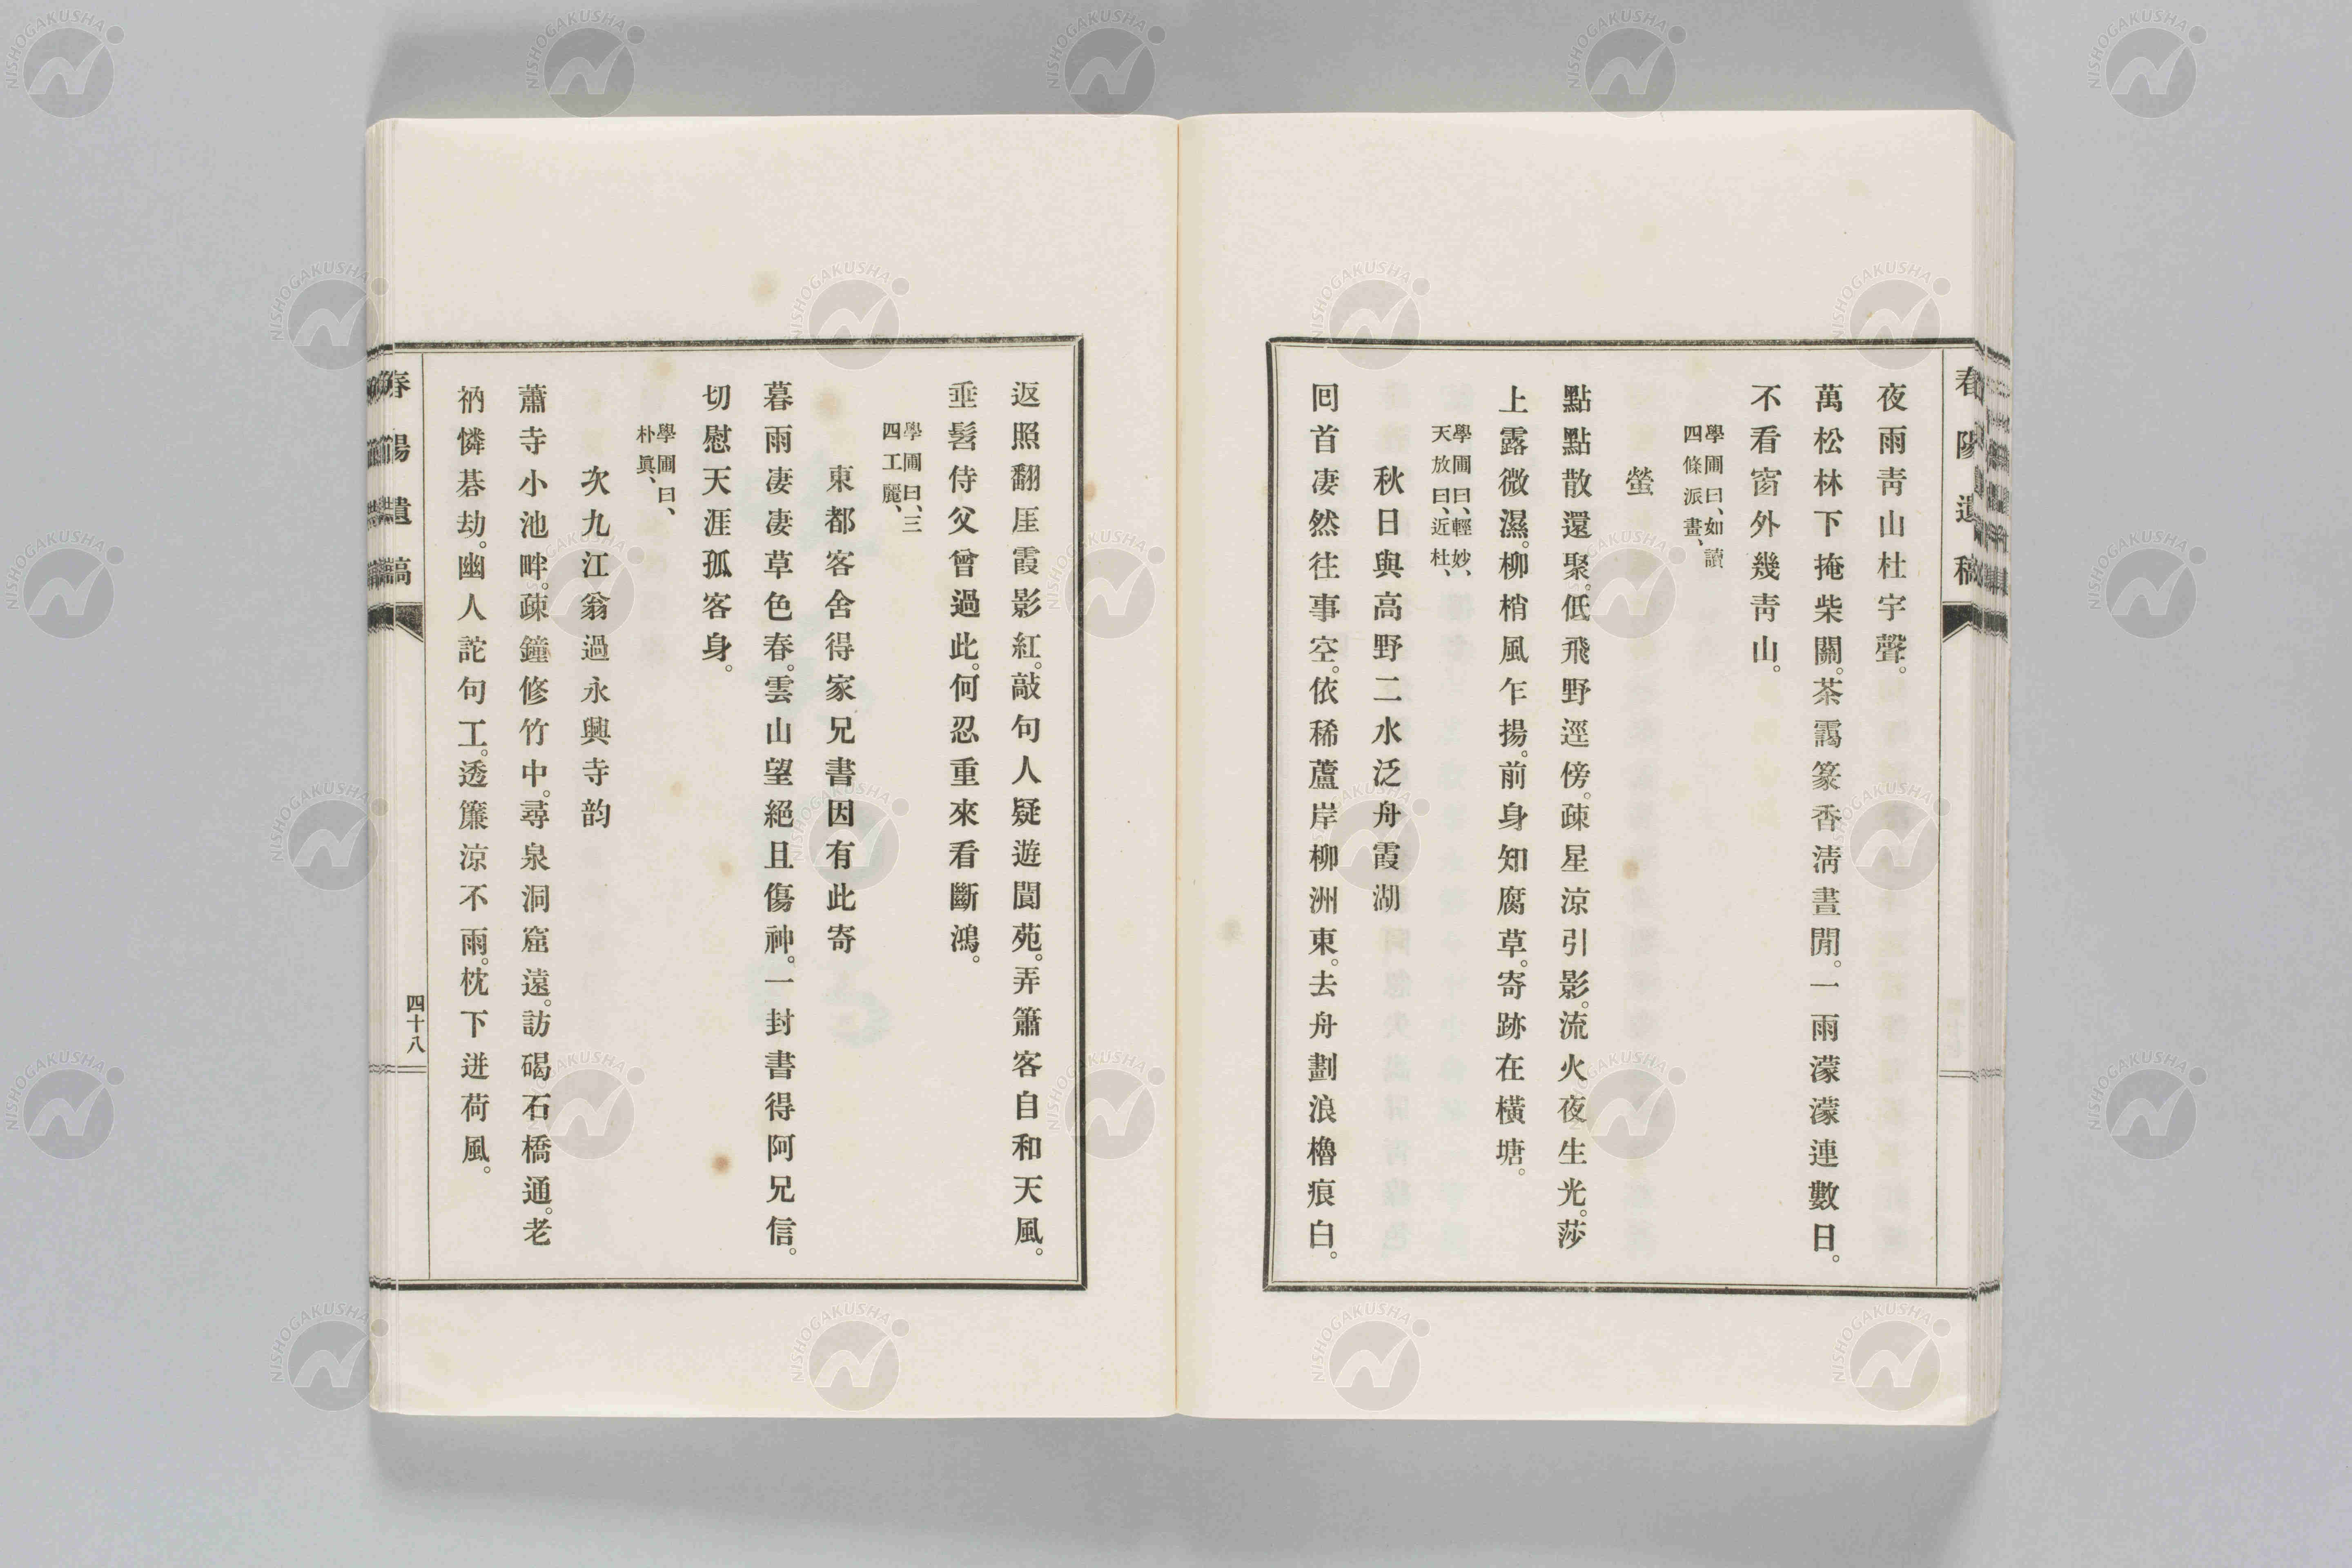 夜雨靑山杜宇聲。
萬松林下掩柴關。茶靄篆香淸晝閒。一雨濛濛連數日。
不看窗外幾靑山。
學圃曰、如讀
四條派畫、
螢
點點散還聚。低飛野逕傍。疎星涼引影。流火夜生光。莎
上露微濕。柳梢風乍揚。前身知腐草。寄跡在橫塘。
學圃曰、輕妙、
天放曰、近杜、
秋日與高野二水泛舟霞湖
囘首凄然往事空。依稀蘆岸柳洲東。去舟劃浪櫓痕白。
春陽遺稿
返照翻厓霞影紅。敲句人疑遊閬苑。弄簫客自和天風。
垂髫侍父曾過此。何忍重來看斷鴻。
學圃曰、三
四工麗、
東都客舍得家兄書因有此寄
暮雨凄凄草色春。雲山望絕且傷神。一封書得阿兄信。
切慰天涯孤客身。
學圃曰、
朴眞、
次九江翁過永興寺韵
蕭寺小池畔。疎鐘修竹中。尋泉洞窟遠。訪碣石橋通。老
衲憐碁劫。幽人詫句工。透簾涼不雨。枕下迸荷風。
春陽遺稿
四十八
NISHOGAKUSHA